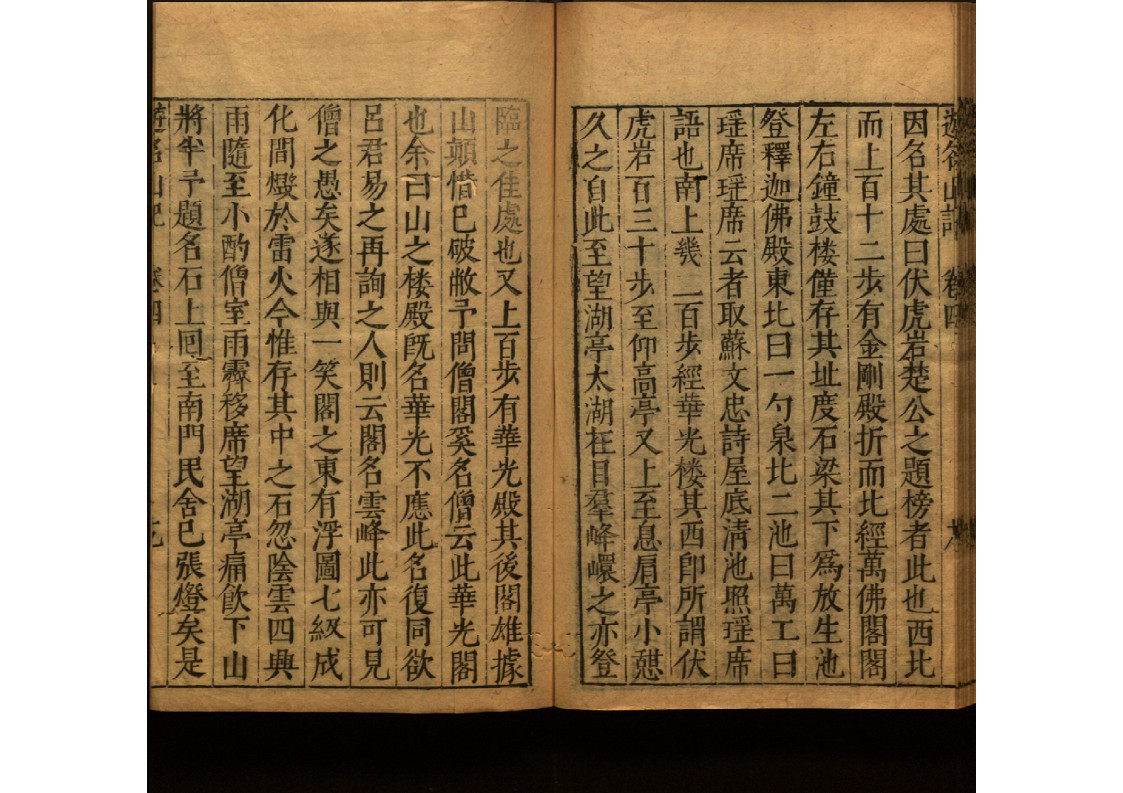 遊名山記 卷四
因名其處曰伏虎岩楚公之題榜者此也西北
而上百十二步有金剛殿折而北經萬佛閣閣
左右鐘鼓楼僅存其址度石梁其下爲放生池
登釋迦佛殿東北曰一勺泉北二池曰萬工曰
瑶席瑶席云者取蘇文忠詩屋底清池照瑶席
語也南上幾一百步經華光楼其西即所謂伏
虎岩百三十步至仰高亭又上至息肩亭小憇
久之自此至望湖亭太湖在目羣峰嶩之亦登
臨之佳處也又上百步有華光殿其後閣雄據
山顛惜已破敝予問僧閣奚名僧云此華光閣
也余曰山之楼殿既名華光不應此名復同欲
呂君易之再詢之人則云閣名雲峰此亦可見
僧之愚矣遂相與一笑閣之東有浮圖七級成
化間燬於雷火今惟存其中之石忽陰雲四興
雨隨至小酌僧室雨霽移席望湖亭痛飲下山
將半予題名石上囘至南門民舍已張燈矣是
遊名山記 卷四